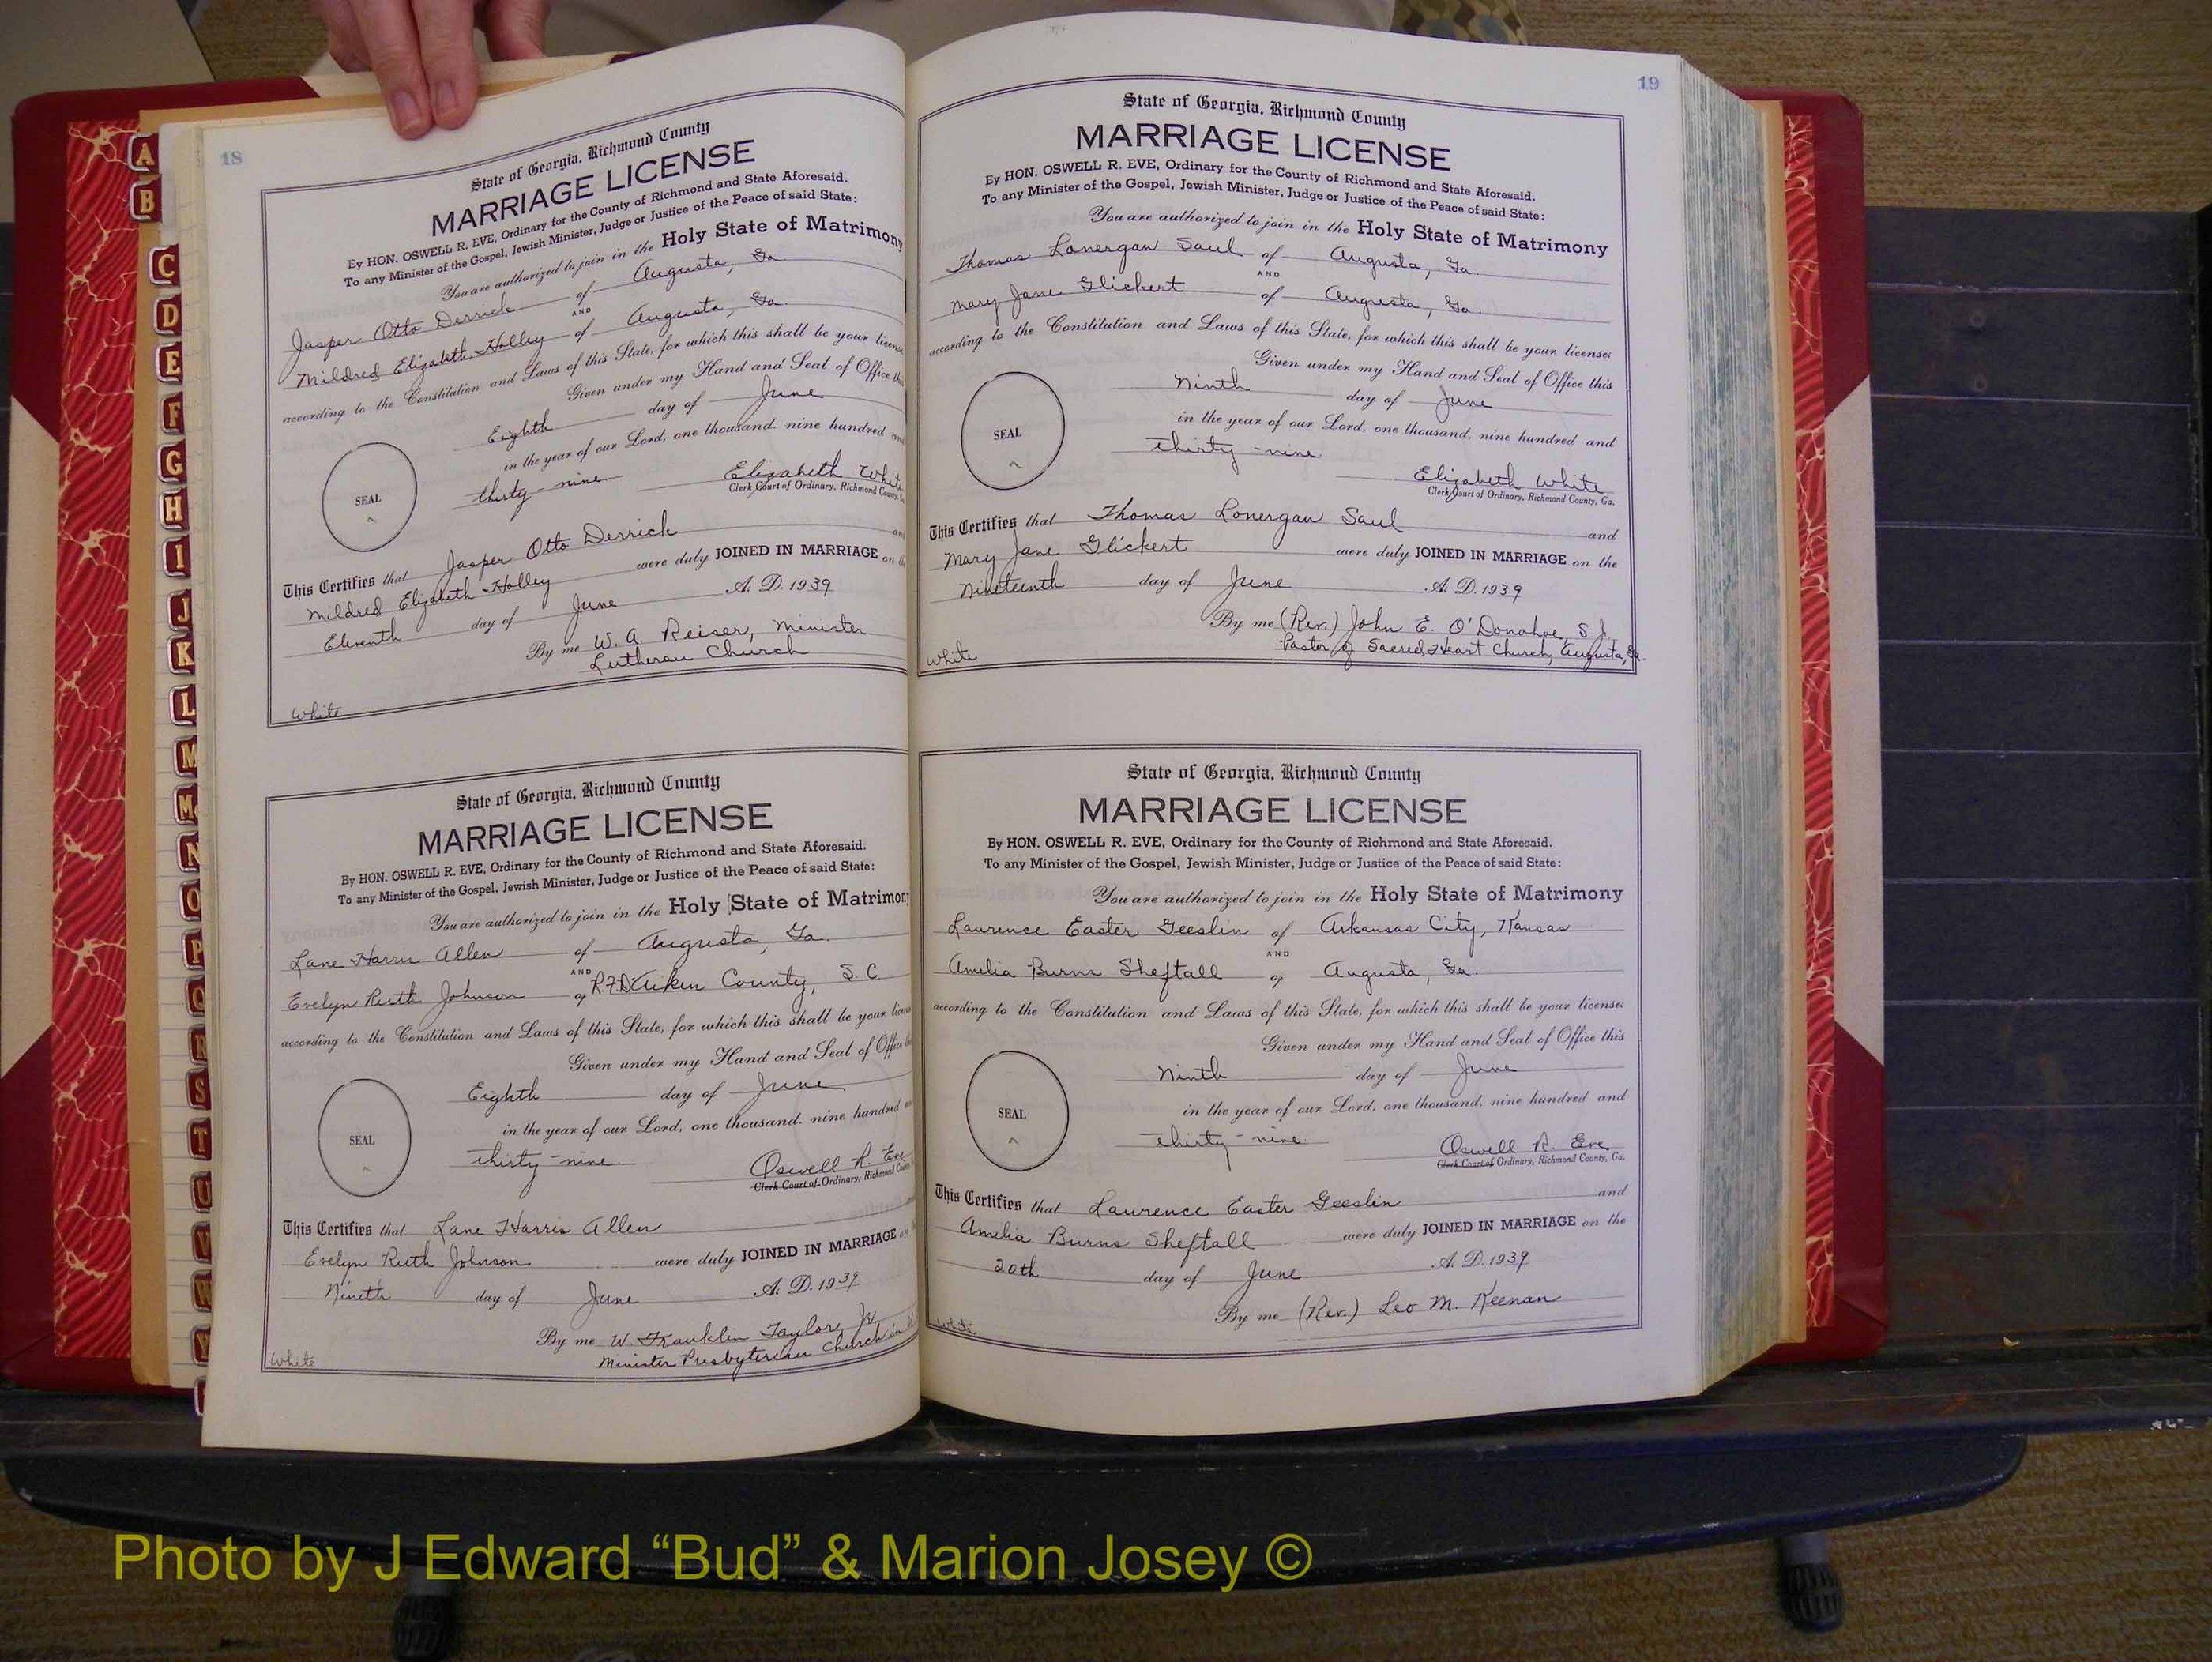 18
State of Georgia, Richmond County
MARRIAGE LICENSE
By HON. OSWELL R. EVE, Ordinary for the County of Richmond and State Aforesaid.
To any Minister of the Gospel, Jewish Minister, Judge or Justice of the Peace of said State:
You are authorized to join in the Holy State of Matrimony
Jasper Otto Derrick of Augusta, Ga.
AND
Mildred Elizabeth Holley of Augusta, Ga.
according to the Constitution and Laws of this State, for which this shall be your license
Given under my Hand and Seal of Office this
Eighth day of June
in the year of our Lord, one thousand, nine hundred and
SEAL
thirty-nine
Elizabeth White
Clerk Court of Ordinary, Richmond County, Ga.
This Certifies that Jasper Otto Derrick and
Mildred Elizabeth Holley were duly JOINED IN MARRIAGE on the
Eleventh day of June A. D. 1939
By me W. A. Reiser, Minister
Lutheran Church
White
State of Georgia, Richmond County
MARRIAGE LICENSE
By HON. OSWELL R. EVE, Ordinary for the County of Richmond and State Aforesaid.
To any Minister of the Gospel, Jewish Minister, Judge or Justice of the Peace of said State:
You are authorized to join in the Holy State of Matrimony
Lane Harris Allen of Augusta, Ga.
AND
Evelyn Ruth Johnson of R.F.D. Aiken County, S. C
according to the Constitution and Laws of this State, for which this shall be your license
Given under my Hand and Seal of Office
Eighth day of June
in the year of our Lord, one thousand, nine hundred
SEAL
thirty-nine
Oswell R. Eve
Clerk Court of Ordinary, Richmond County
This Certifies that Lane Harris Allen
Evelyn Ruth Johnson were duly JOINED IN MARRIAGE on
Ninth day of June A. D. 1939
By me W. Franklin Taylor, Jr.
Minister Presbyterian Church in
White
19
State of Georgia, Richmond County
MARRIAGE LICENSE
By HON. OSWELL R. EVE, Ordinary for the County of Richmond and State Aforesaid.
To any Minister of the Gospel, Jewish Minister, Judge or Justice of the Peace of said State:
You are authorized to join in the Holy State of Matrimony
Thomas Lonergan Saul of Augusta, Ga.
AND
Mary Jane Glickert of Augusta, Ga.
according to the Constitution and Laws of this State, for which this shall be your license:
Given under my Hand and Seal of Office this
Ninth day of June
in the year of our Lord, one thousand, nine hundred and
SEAL
thirty-nine
Elizabeth White
Clerk Court of Ordinary, Richmond County, Ga.
This Certifies that Thomas Lonergan Saul and
Mary Jane Glickert were duly JOINED IN MARRIAGE on the
Nineteenth day of June A. D. 1939
By me (Rev.) John E. O'Donohoe, S. J.
Pastor of Sacred Heart Church, Augusta, Ga.
White
State of Georgia, Richmond County
MARRIAGE LICENSE
By HON. OSWELL R. EVE, Ordinary for the County of Richmond and State Aforesaid.
To any Minister of the Gospel, Jewish Minister, Judge or Justice of the Peace of said State:
You are authorized to join in the Holy State of Matrimony
Laurence Easter Geeslin of Arkansas City, Kansas
AND
Amelia Burns Sheftall of Augusta, Ga.
according to the Constitution and Laws of this State, for which this shall be your license:
Given under my Hand and Seal of Office this
Ninth day of June
in the year of our Lord, one thousand, nine hundred and
SEAL
thirty-nine
Oswell R. Eve
Clerk Court of Ordinary, Richmond County, Ga.
This Certifies that Laurence Easter Geeslin and
Amelia Burns Sheftall were duly JOINED IN MARRIAGE on the
20th day of June A. D. 1939
By me (Rev.) Leo M. Keenan
White
A
B
C
D
E
F
G
H
I
J
K
L
M
Mc
N
O
P
Q
R
S
T
U
V
W
Y
Photo by J Edward “Bud” & Marion Josey ©